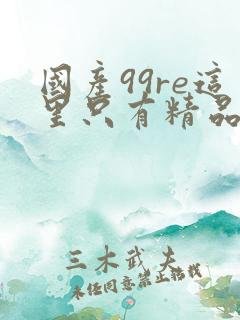 國產99re這
里只有精品
三木武夫
未经同意禁止转载